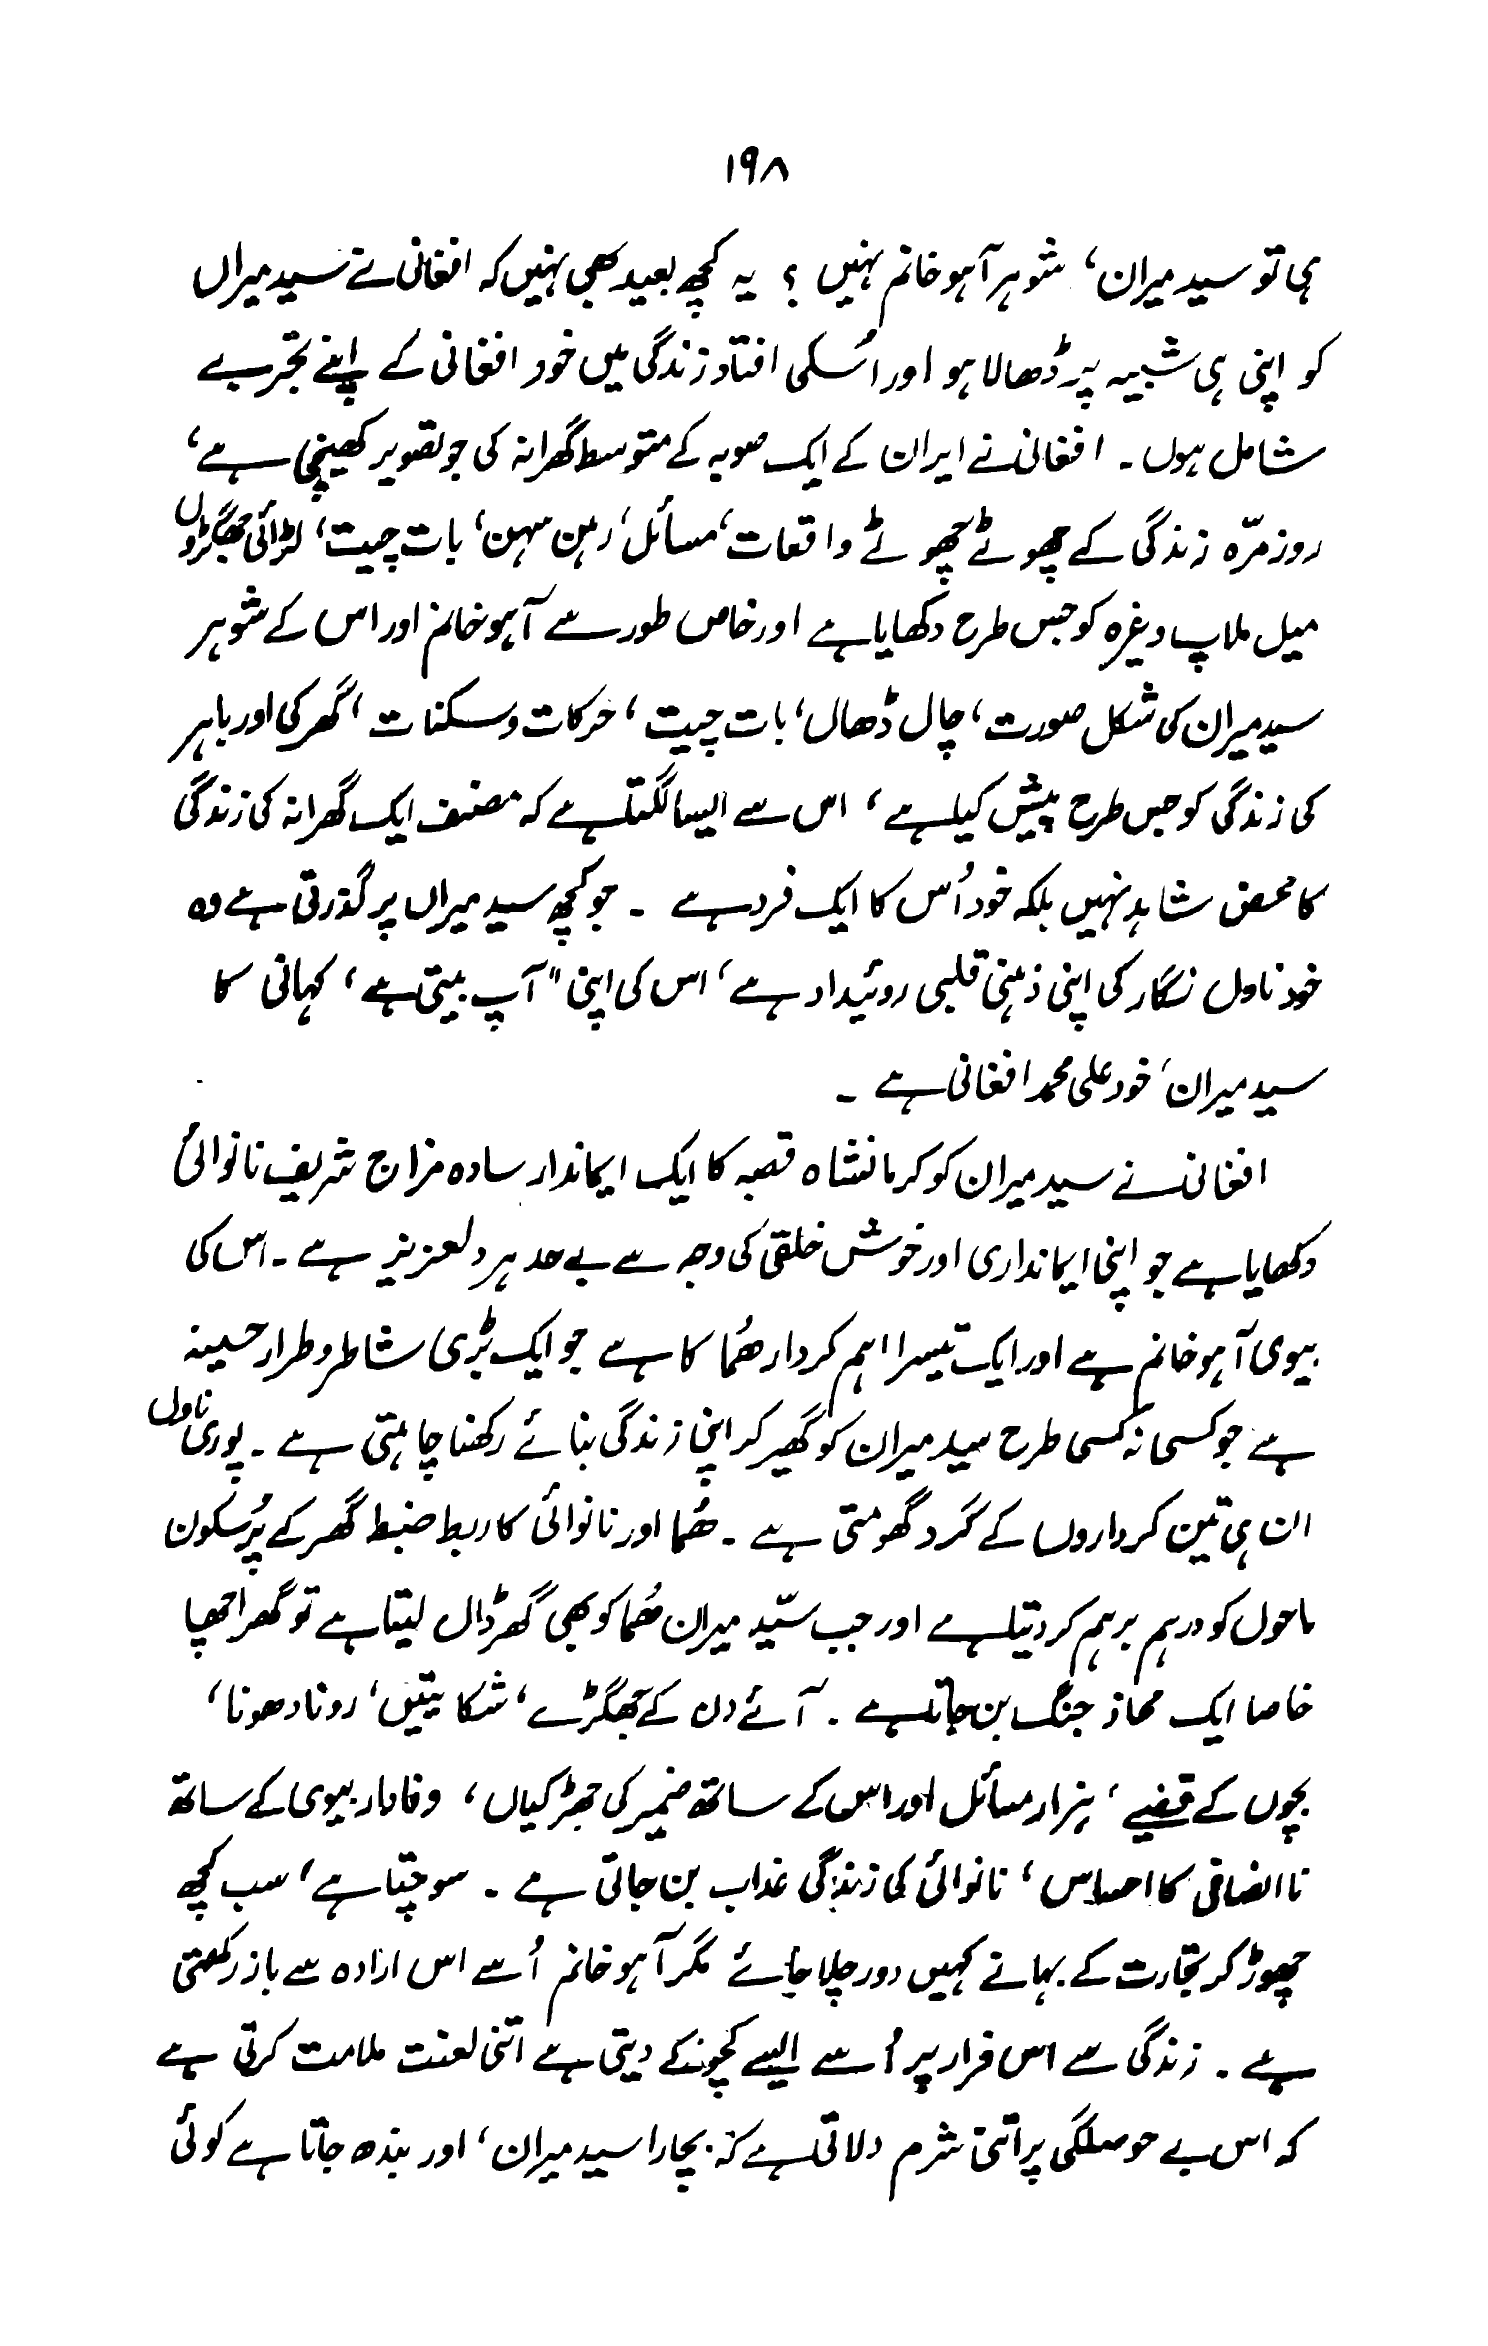 ۱۹۸
ہی تو سید میران، شوہر آہو خانم نہیں ؟ یہ کچھ بعید بھی نہیں کہ افغانی نے سید میراں
کو اپنی ہی شبیہ پر ڈھالا ہو اور اُسکی افتاد زندگی میں خود افغانی کے اپنے تجربے
شامل ہوں۔ افغانی نے ایران کے ایک صوبہ کے متوسط گھرانہ کی جو تصویر کھینچی ہے،
روزمرّہ زندگی کے چھوٹے چھوٹے واقعات، مسائل، رہن سہن، بات چیت، لڑائی جھگڑوں
میل ملاپ وغیرہ کو جس طرح دکھایا ہے اور خاص طور سے آہو خانم اور اس کے شوہر
سید میران کی شکل صورت، چال ڈھال، بات چیت، حرکات و سکنات، گھر کی اور باہر
کی زندگی کو جس طرح پیش کیا ہے، اس سے ایسا لگتا ہے کہ مصنف ایک گھرانہ کی زندگی
کا محض شاہد نہیں بلکہ خود اُس کا ایک فرد ہے ۔ جو کچھ سید میراں پر گذرتی ہے وہ
خود ناول نگار کی اپنی ذہنی قلبی روئیداد ہے، اس کی اپنی "آپ بیتی ہے، کہانی کا
سید میران، خود علی محمد افغانی ہے ۔
افغانی نے سید میران کو کرمانشاہ قصبہ کا ایک ایماندار سادہ مزاج شریف نانوائی
دکھایا ہے جو اپنی ایمانداری اور خوش خلقی کی وجہ سے بے حد ہر دلعزیز ہے ۔ اس کی
بیوی آہو خانم ہے اور ایک تیسرا اہم کردار ھُما کا ہے جو ایک بڑی شاطر و طرار حسینہ
ہے جو کسی نہ کسی طرح سید میران کو گھیر کر اپنی زندگی بنائے رکھنا چاہتی ہے ۔ پوری ناول
ان ہی تین کرداروں کے گرد گھومتی ہے ۔ ھُما اور نانوائی کا ربط ضبط گھر کے پُرسکون
ماحول کو درہم برہم کر دیتا ہے اور جب سیّد میران ھُما کو بھی گھر ڈال لیتا ہے تو گھر اچھا
خاصا ایک محاذ جنگ بن جاتا ہے ۔ آئے دن کے جھگڑے، شکایتیں، رونا دھونا،
بچوں کے قضیے، ہزار مسائل اور اس کے ساتھ ضمیر کی جھڑکیاں، وفادار بیوی کے ساتھ
ناانصافی کا احساس، نانوائی کی زندگی عذاب بن جاتی ہے ۔ سوچتا ہے، سب کچھ
چھوڑ کر تجارت کے بہانے کہیں دور چلا جائے مگر آہو خانم اُسے اس ارادہ سے باز رکھتی
ہے ۔ زندگی سے اس فرار پر اُسے ایسے کچوکے دیتی ہے اتنی لعنت ملامت کرتی ہے
کہ اس بے حوصلگی پر اتنی شرم دلاتی ہے کہ بچارا سید میران، اور بندھ جاتا ہے کوئی